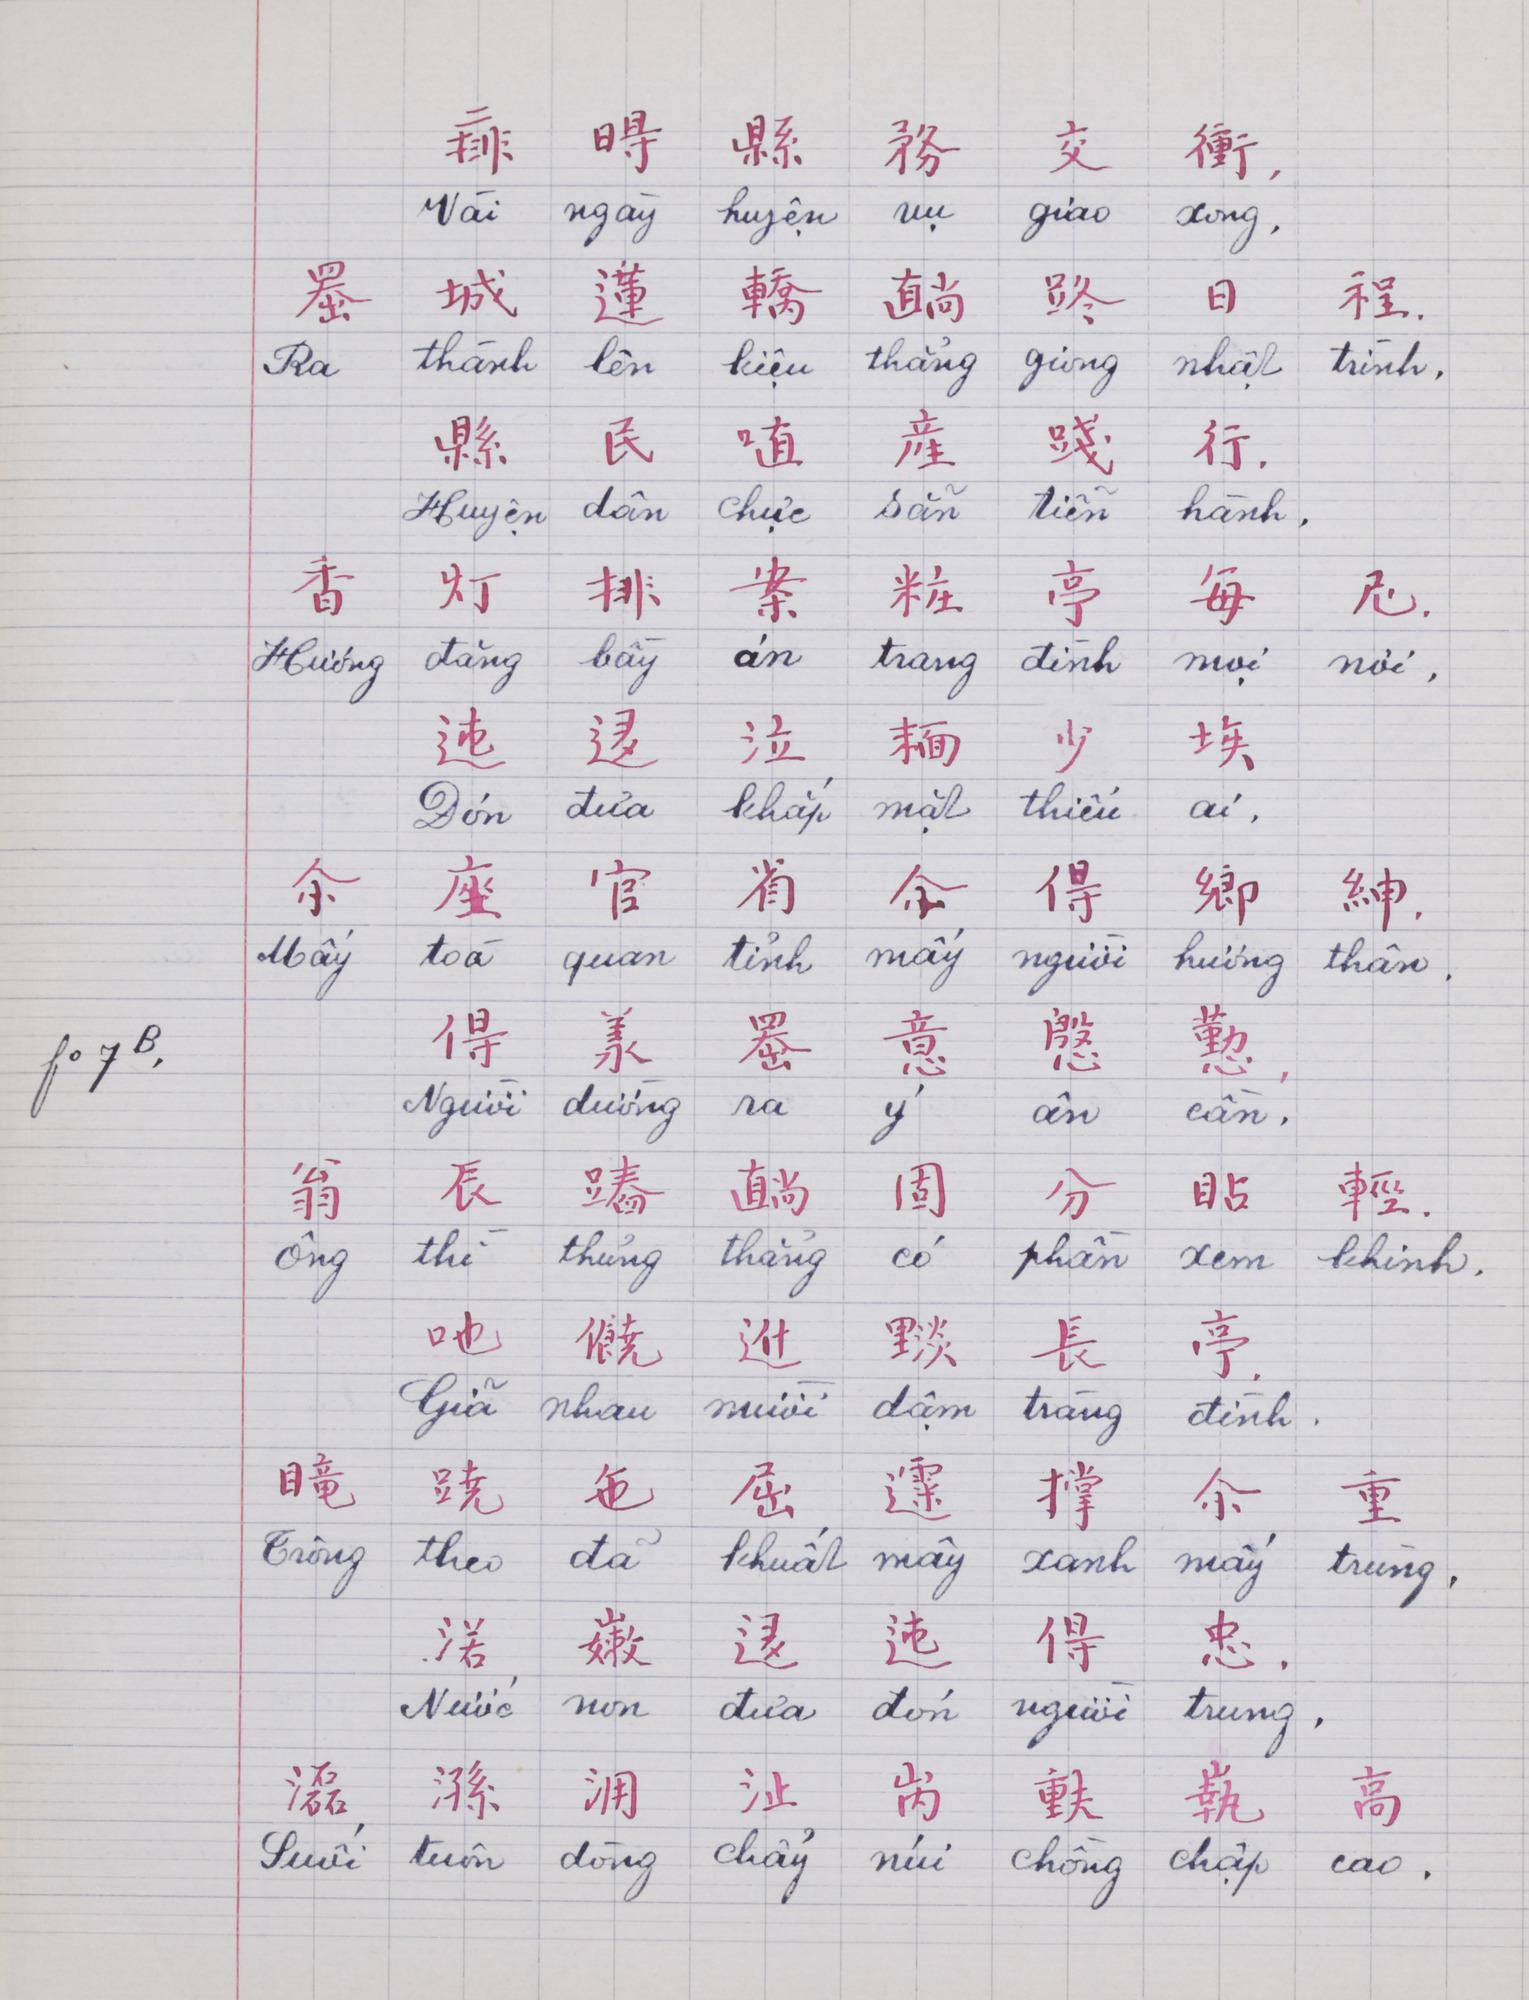 𱥺 𣈗 縣 務 交 衝,
Vài ngày huyện vụ giao xong,
𦋦 城 𨖲 轎 𥊣 𨀐 日 程.
Ra thành lên kiệu thẳng giong nhật trình,
縣 民 㨁 產 踐 行.
Huyện dân chực sẵn tiễn hành,
香 灯 排 案 粧 亭 每 尼.
Hương đăng bầy án trang đình mọi nơi,
迍 迻 泣 𩈘 少 埃
Đón đưa khắp mặt thiếu ai,
尒 座 官 省 尒 得 鄉 紳,
Mấy toà quan tỉnh mấy người hương thân,
fº 7 B,
得 羕 𦋦 意 慇 懃,
Người dường ra ý ân cần,
翁 辰 𨃕 𥊣 固 分 貼 輕.
Ông thì thủng thẳng có phần xem khinh,
吔 饒 𨑮 𨤮 長 亭,
Giã nhau mười dậm tràng đình,
曨 蹺 㐌 屈 𩄲 撑 尒 重
Trông theo đã khuất mây xanh mấy trùng,
渃 𡽫 迻 迍 得 忠,
Nước non đưa đón người trung,
㵢 㴵 𣳔 沚 𡶀 𠽖 𡎢 高
Suối tuôn dòng chẩy núi chồng chập cao,